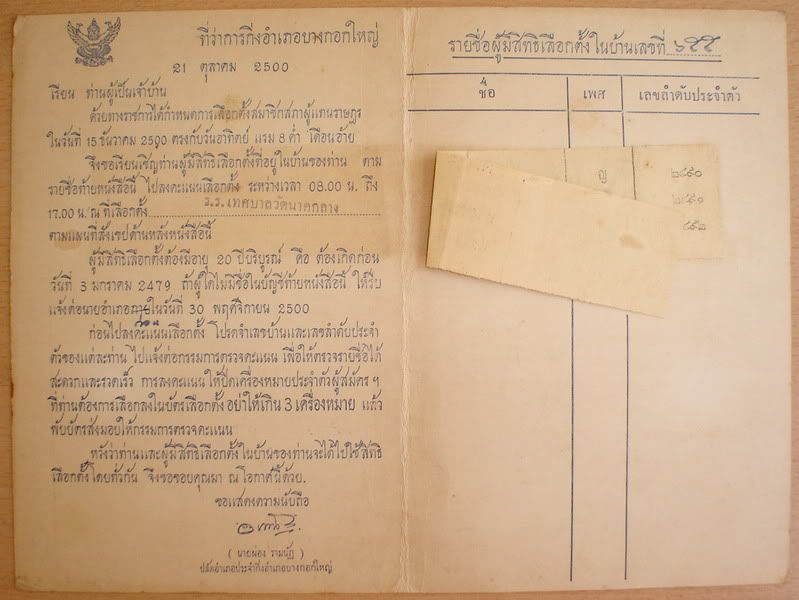 ที่ว่าการกิ่งอำเภอบางกอกใหญ่
21 ตุลาคม 2500
เรียน ท่านผู้เป็นเจ้าบ้าน
ด้วยทางราชการได้กำหนดการเลือกตั้งสมาชิกสภาผู้แทนราษฎร
ในวันที่ 15 ธันวาคม 2500 ตรงกับวันอาทิตย์ แรม 8 ค่ำ เดือนอ้าย
จึงขอเรียนเชิญท่านผู้มีสิทธิเลือกตั้งที่อยู่ในบ้านของท่าน ตาม
รายชื่อท้ายหนังสือนี้ ไปลงคะแนนเลือกตั้ง ระหว่างเวลา 08.00 น. ถึง
17.00 น. ณ ที่เลือกตั้ง ร.ร.เทศบาลวัดนาคกลาง
ตามแผนที่สังเขปด้านหลังหนังสือนี้
ผู้มีสิทธิเลือกตั้งต้องมีอายุ 20 ปีบริบูรณ์ คือ ต้องเกิดก่อน
วันที่ 3 มกราคม 2479 ถ้าผู้ใดไม่มีชื่อในบัญชีท้ายหนังสือนี้ ให้รีบ
แจ้งต่อนายอำเภอภายในวันที่ 30 พฤศจิกายน 2500
ก่อนไปลงคะแนนเลือกตั้ง โปรดจำเลขบ้านและเลขลำดับประจำ
ตัวของแต่ละท่าน ไปแจ้งต่อกรรมการตรวจคะแนน เพื่อให้ตรวจรายชื่อได้
สะดวกและรวดเร็ว การลงคะแนนให้ปิดเครื่องหมายประจำตัวผู้สมัคร ฯ
ที่ท่านต้องการเลือกลงในบัตรเลือกตั้ง อย่าให้เกิน 3 เครื่องหมาย แล้ว
พับบัตรส่งมอบให้กรรมการตรวจคะแนน
หวังว่าท่านและผู้มีสิทธิเลือกตั้งในบ้านของท่านจะได้ไปใช้สิทธิ
เลือกตั้งโดยทั่วกัน จึงขอขอบคุณมา ณ โอกาศนี้ด้วย.
ขอแสดงความนับถือ
( นายผ่อง รามนัฏ )
ปลัดอำเภอประจำกิ่งอำเภอบางกอกใหญ่
รายชื่อผู้มีสิทธิเลือกตั้งในบ้านเลขที่ ๖๕๕
ชื่อ เพศ เลขลำดับประจำตัว
ญ ๒๔๙๐
๒๔๙๑
๔๙๒